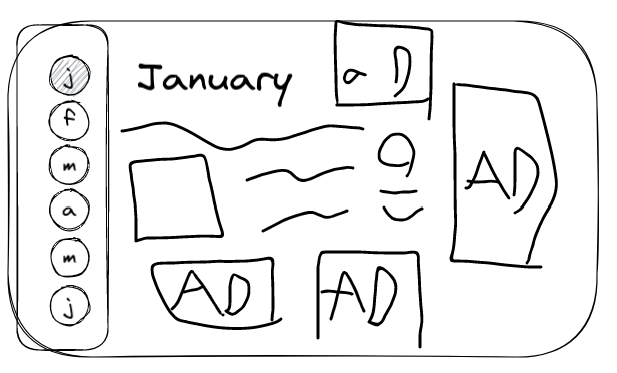 j
f
m
a
m
j
January
a D
AD
AD
AD